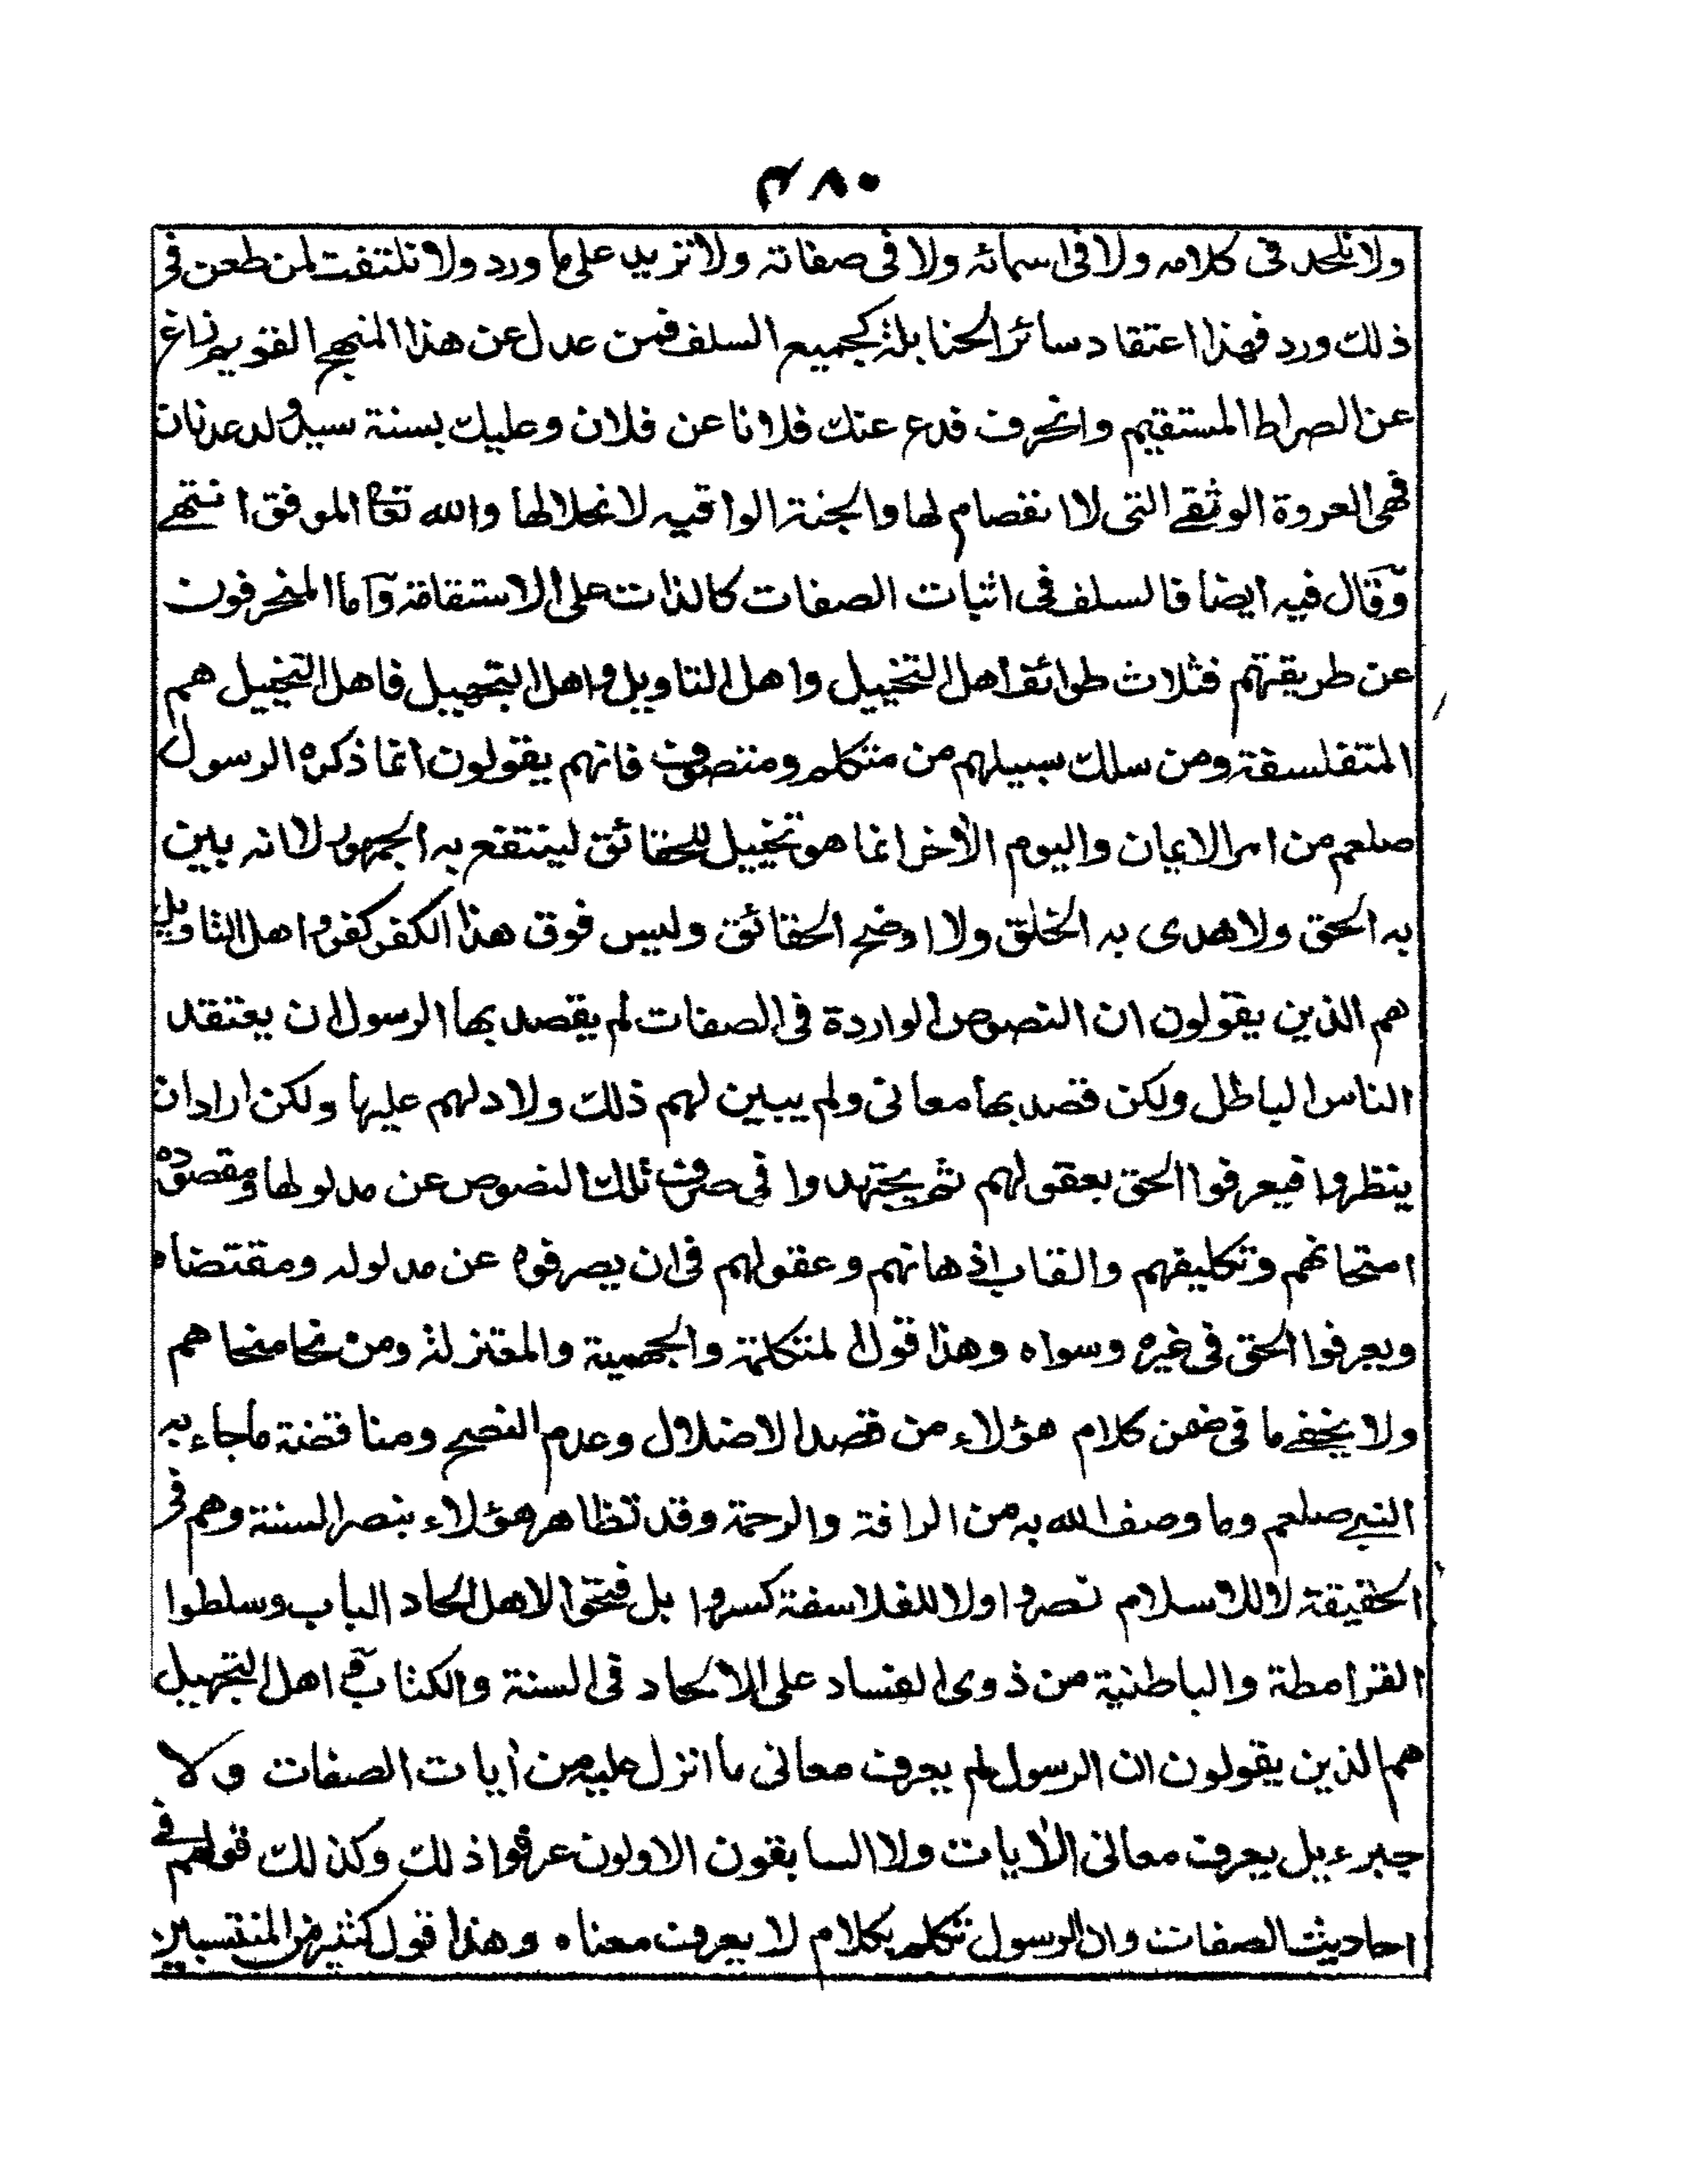 ۴۸۰
ولا نلحد فى كلامه ولا فى اسمائه ولا فى صفاته ولا نزيد على ما ورد ولا نلتفت لمن طعن فى
ذلك ورد فهذا اعتقاد سائر الحنابلة كجميع السلف فمن عدل عن هذا المنهج القويم زاغ
عن الصراط المستقيم وانحرف فدع عنك فلانا عن فلان وعليك بسنة سيد ولد عدنان
فهى العروة الوثقے التى لا انفصام لها والجنة الواقيه لا نحلالها والله تعا الموفق انتهے
وقال فيه ايضا فالسلف فى اثبات الصفات كالذات على الاستقامة واما المنحرفون
عن طريقتهم فثلاث طوائف اهل التخييل واهل التاويل واهل التجهيل فاهل التخييل هم
المتفلسفة ومن سلك سبيلهم من متكلم ومتصوف فانهم يقولون انما ذكره الرسول
صلعم من امر الايمان واليوم الأخر انما هو تخييل للحقائق لينتفع به الجمهور لا انه يبين
به الحق ولا هدى به الخلق ولا اوضح الحقائق وليس فوق هذا الكفر كفر واهل التاويل
هم الذين يقولون ان النصوص الواردة فى الصفات لم يقصد بها الرسول ان يعتقد
الناس الباطل ولكن قصد بها معانى ولم يبين لهم ذلك ولا دلهم عليها ولكن اراد ان
ينظروا فيعرفوا الحق بعقولهم ثم يجتهدوا فى صرف تلك النصوص عن مدلولها ومقصوده
امتحانهم وتكليفهم والقاب اذهانهم وعقولهم فى ان يصرفوه عن مدلوله ومقتضاه
ويعرفوا الحق فى غيره وسواه وهذا قول المتكلمة والجهمية والمعتزلة ومن نحا منحاهم
ولا يخفے ما فى ضمن كلام هؤلاء من قصد الاضلال وعدم النصح ومناقضة ما جاء به
النبے صلعم وما وصف الله به من الرافة والرحمة وقد تظاهر هؤلاء بنصر السنة وهم فى
الحقيقة لا للاسلام نصروا ولا للفلاسفة كسروا بل فتحوا لاهل الحاد الباب وسلطوا
القرامطة والباطنية من ذوى الفساد على الالحاد فى السنة والكتاب واهل التجهيل
هم الذين يقولون ان الرسول لم يعرف معانى ما انزل عليه من أيات الصفات ولا
جبرءيل يعرف معانى الأيات ولا السابقون الاولون عرفوا ذلك وكذلك قولهم فے
احاديث الصفات وان الرسول تكلم بكلام لا يعرف معناه وهذا قول كثير من المنتسبين